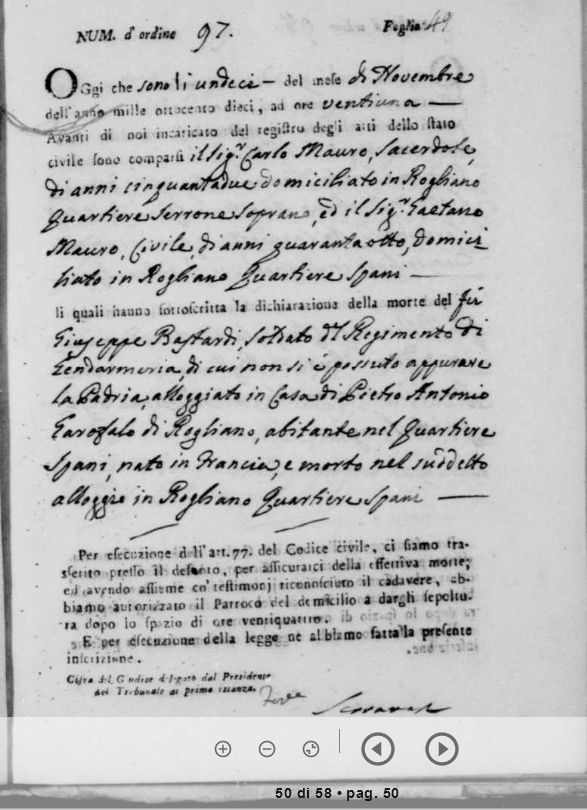 NUM. d'ordine 97. Foglio 49
OGgi che sono li undeci — del mese di Novembre
dell'anno mille ottocento dieci, ad ore ventiuna —
Avanti di noi incaricato del registro degli atti dello stato
civile sono comparsi il Sig.r Carlo Mauro, Sacerdote,
di anni cinquantadue domiciliato in Rogliano
Quartiere Serrone Soprano, ed il Sig.r Gaetano
Mauro, Civile, di anni quarantaotto, domici
liato in Rogliano Quartiere Spani —
li quali hanno sottoscritta la dichiarazione della morte del fù
Giuseppe Bastardi, soldato del Regimento di
Gendarmeria di cui non si è possuto appurare
la Padria, alloggiato in Casa di Pietro Antonio
Garofalo di Rogliano, abitante nel Quartiere
Spani, nato in Francia, e morto nel suddetto
alloggio in Rogliano Quartiere Spani —
Per esecuzione dell'art. 77. del Codice civile, ci siamo tra-
sferito presso il defonto, per assicurarci della effettiva morte;
ed avendo assieme co' testimonj riconosciuto il cadavere, ab-
biamo autorizzato il Parroco del domicilio a dargli sepoltu-
ra dopo lo spazio di ore ventiquattro.
E per esecuzione della legge ne abbiamo fatta la presente
inscrizione.
Cifra del Giudice delegato dal Presidente
del Tribunale di prima istanza.
50 di 58 • pag. 50